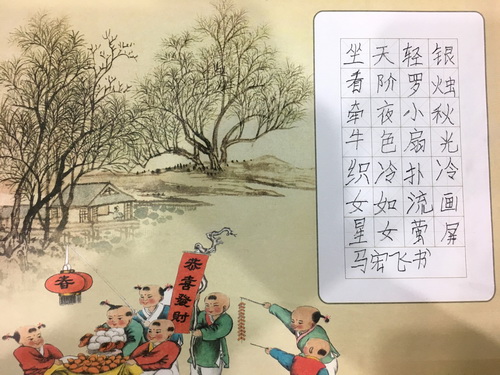 银烛秋光冷画屏
轻罗小扇扑流萤
天阶夜色冷如女
坐看牵牛织女星
马宏飞书
恭喜發財
春